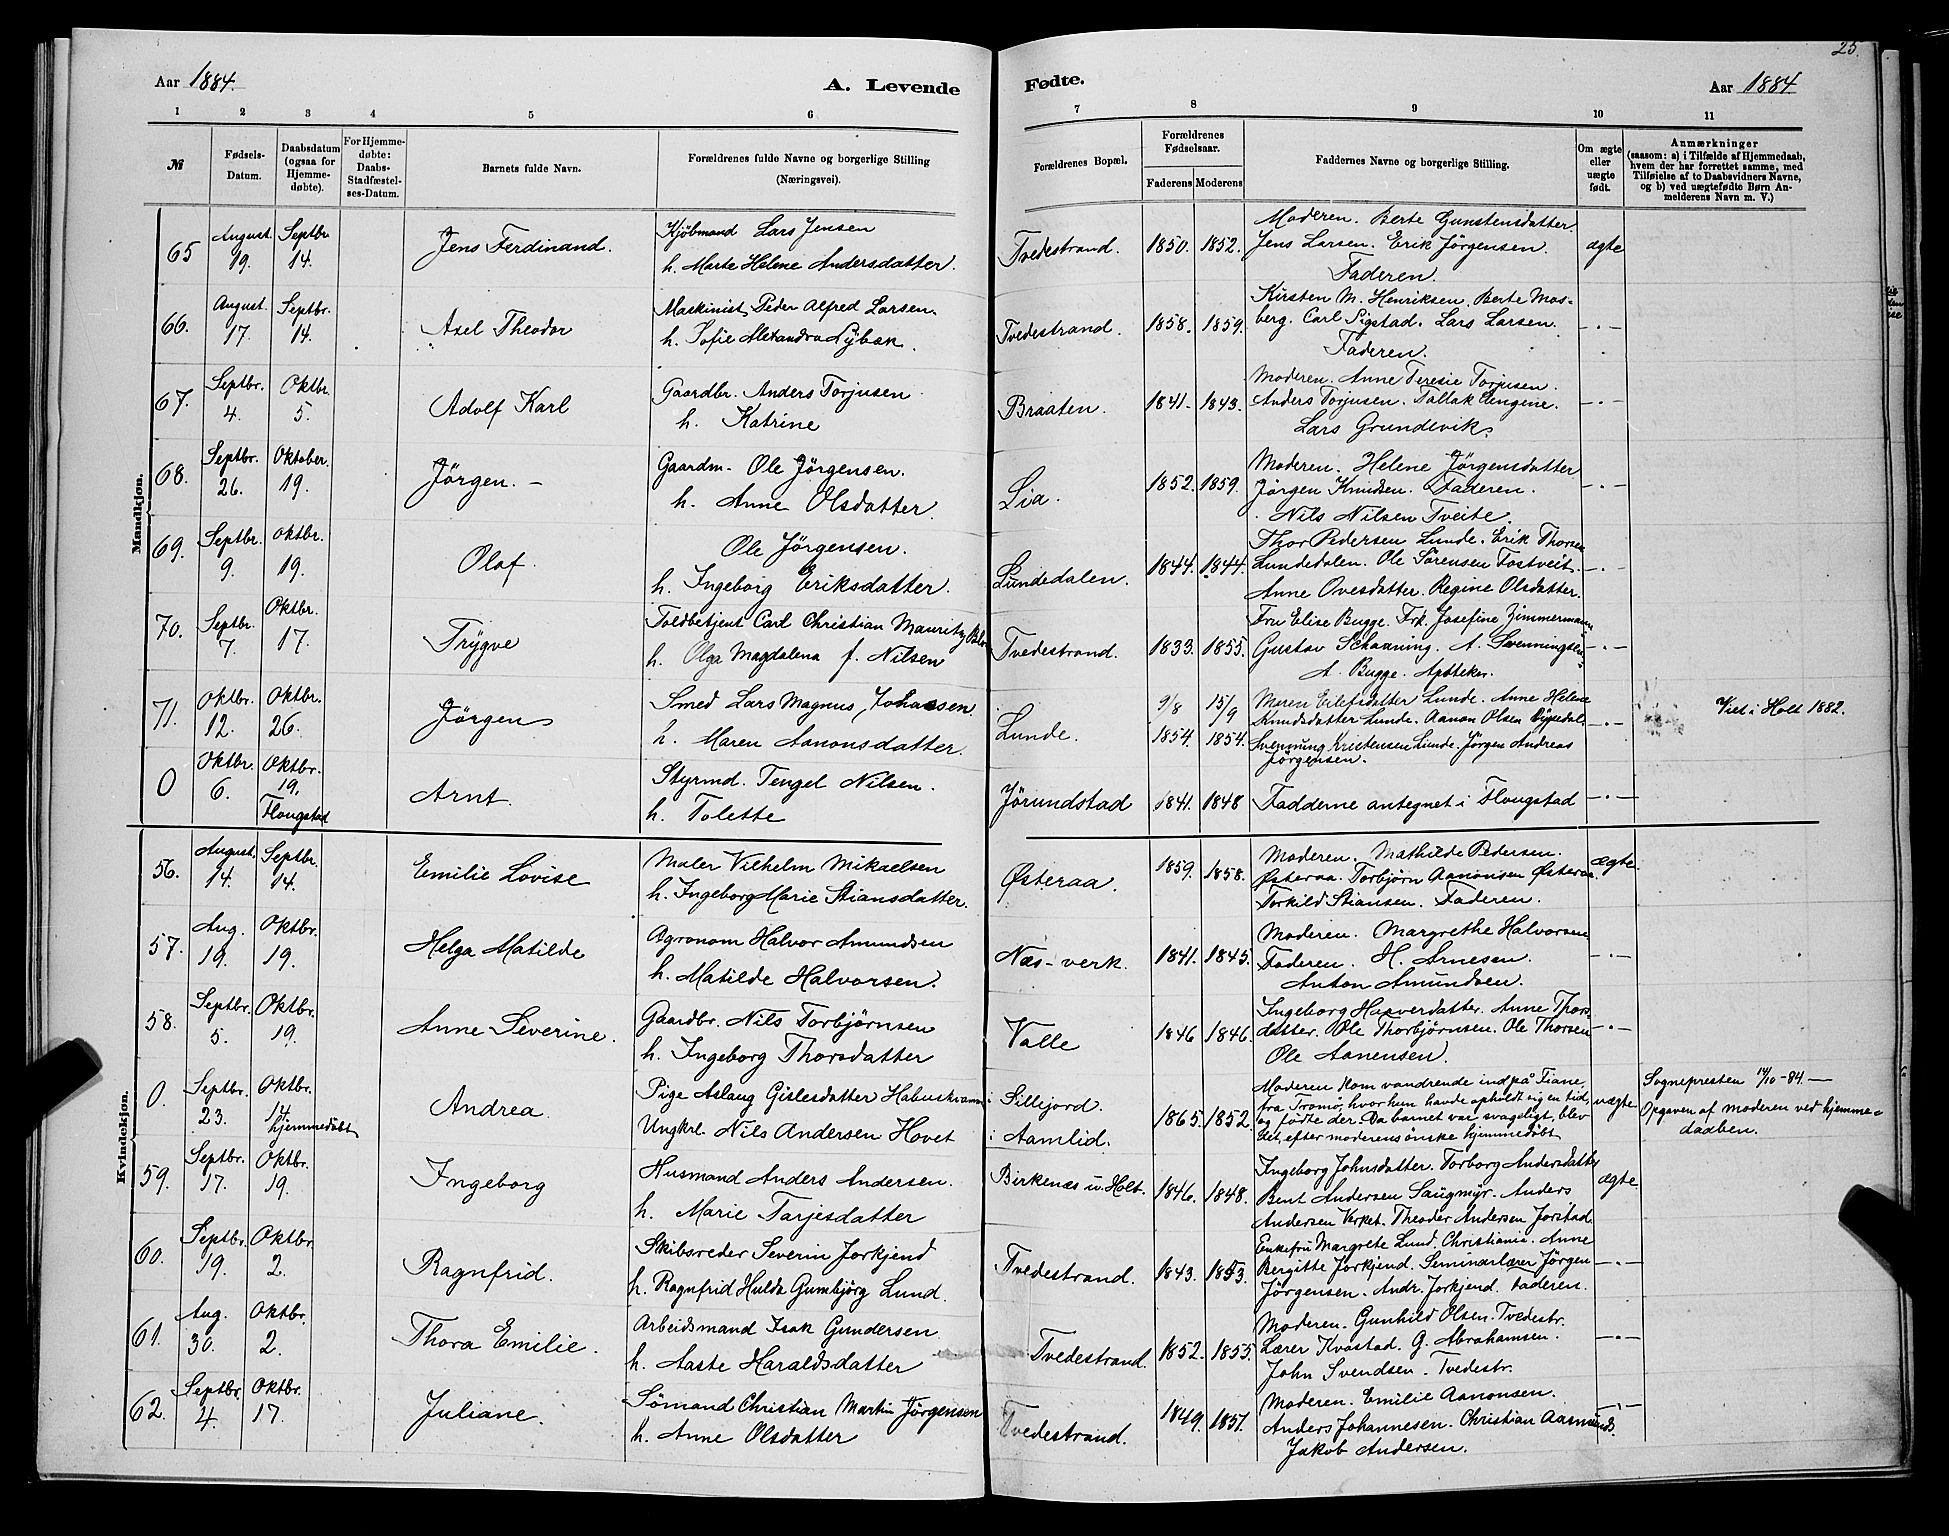 25.
Aar 1884.
A. Levende
Fødte.
Aar 1884.
1 2 3 4 5 6 7 8 9 10 11
№
Fødsels-
Datum.
Daabsdatum
(ogsaa for
Hjemme-
døbte).
For Hjemme-
døbte:
Daabs-
Stadfæstel-
ses-Datum.
Barnets fulde Navn.
Forældrenes fulde Navne og borgerlige Stilling
(Næringsvei).
Forældrenes Bopæl.
Forældrenes
Fødselsaar.
Faderens Moderens
Faddernes Navne og borgerlige Stilling.
Om ægte
eller
uægte
født.
Anmærkninger
(saasom: a) i Tilfælde af Hjemmedaab,
hvem der har forrettet samme, med
Tilføielse af to Daabsvidners Navne,
og b) ved uægtefødte Børn An-
melderens Navn m. V.)
Mandkjøn.
65
August. 19.
Septbr. 14.
Jens Ferdinand.
Kjøbmand Lars Jensen
h. Marte Helene Andersdatter.
Tvedestrand.
1850. 1852.
Moderen. Berte Gunstensdatter.
Jens Larsen. Erik Jörgensen.
Faderen.
ægte
66.
August. 17.
Septbr. 14.
Axel Theodor
Maskinist Peder Alfred Larsen.
h. Sofie Alexandra Nybæk.
Tvedestrand.
1858. 1859.
Kirsten M. Henriksen. Berte Mos-
berg. Carl Sigstad. Lars Larsen.
Faderen.
—·—
67.
Septbr. 4.
Oktbr. 5.
Adolf Karl
Gaardbr. Anders Torjusen.
h. Katrine
Braaten.
1841. 1843.
Moderen. Anne Teresie Torjusen.
Anders Torjusen. Tallak Engene.
Lars Grundevik.
—·—
68.
Septbr. 26.
Oktober. 19.
Jörgen. -
Gaardm. Ole Jörgensen.
h. Anne Olsdatter.
Lia.
1852. 1859.
Moderen. Helene Jörgensdatter
Jörgen Knudsen. Faderen.
Nils Nilsen Tveite.
—·—
69.
Septbr. 9.
Oktbr. 19.
Olaf.
Ole Jörgensen.
h. Ingeborg Eriksdatter.
Lundedalen.
1844. 1844.
Thor Pedersen Lunde. Erik Thorsen
Lundedalen. Ole Sörensen Fostveit.
Anne Ovesdatter. Regine Olsdatter.
—·—
70.
Septbr. 7.
Oktbr. 17.
Trygve
Toldbetjent Carl Christian Mauritz
h. Olga Magdalena f. Nilsen
Tvedestrand.
1833. 1855.
Fru Elise Bugge. Frk. Josefine Zimmermann
Gustav Schanning. A. Svenningsen
A. Bugge. Apotheker.
—·—
71.
Oktbr. 12.
Oktbr. 26.
Jörgen
Smed Lars Magnus Johassen.
h. Maren Aanonsdatter.
Lunde.
9/8 1854. 15/9 1854.
Maren Eilefsdatter Lunde. Anne Helene
Knudsdatter Lunde. Aanon Olsen
Svennung Kristensen Lunde. Jörgen Andreas
Jörgensen.
—·—
Viet i Holt 1882.
0
Oktbr. 6.
Oktbr. 19. Flougstad
Arnt.
Styrmd. Tengel Nilsen.
h. Tolette
Jörundstad
1841. 1848
Fadderne antegnet i Flougstad
—·—
Kvindekjøn.
56.
August. 14.
Septbr. 14.
Emilie Lovise
Maler Vilhelm Mikaelsen
h. Ingeborg Marie Stiansdatter.
Østeraa.
1859. 1858.
Moderen. Mathilde Pedersen.
Østeraa. Torbjørn Aanonsen Østeraa.
Torkild Stiansen. Faderen.
ægte.
57.
Aug. 19.
Oktbr. 19.
Helga Matilde
Agronom Halvor Amundsen
h. Matilde Halvorsen.
Næs-verk.
1841. 1845.
Moderen. Margrethe Halvorsen
Faderen. H. Arnesen.
Anton Amundsen.
—·—
58.
Septbr. 5.
Oktbr. 19.
Anne Severine.
Gaardbr. Nils Torbjørnsen
h. Ingeborg Thorsdatter
Valle
1846 1846.
Ingeborg Haaversdatter. Anne Thors-
datter. Ole Thorbjørnsen. Ole Thorsen
Ole Aanensen.
—·—
0.
Septbr. 23.
Oktbr. 14. hjemmedøbt
Andrea.
Pige Aslaug Gislesdatter
Ungkrl. Nils Andersen Hovet
i Sillejord.
i Aamlid.
1865. 1852
Moderen kom vandrende ind på Fiane,
fra Tromö, hvor hun havde opholdt sig en tid,
og fødte der. Da barnet var svageligt, blev
det, efter moderens ønske hjemmedøbt.
uægte
Sognepresten 14/10-84. —
Opgaven af moderen ved hjemme-
daaben.
59.
Septbr. 17.
Oktbr. 19.
Ingeborg
Husmand Anders Andersen.
h. Marie Tarjesdatter
Birkenæs u. Holt.
1846. 1848.
Ingeborg Johnsdatter. Torborg Andersdatter
Bent Andersen Saugmyr. Anders
Andersen Verket. Theodor Andersen Jorstad.
ægte
60.
Septbr. 19.
Oktbr. 2.
Ragnfrid.
Skibsreder Severin Jorkjend
h. Ragnfrid Hulda Gumbjörg Lund.
Tvedestrand.
1843. 1853.
Enkefru Margrete Lund. Christiania. Anne
Bergitte Jorkjend. Seminarlærer Jörgen
Jörgensen. Andr. Jorkjend. Faderen.
—·—
61.
Aug. 30.
Oktbr. 2.
Thora Emilie.
Arbeidsmand Isak Gundersen.
h. Aaste Haraldsdatter
Tvedestrand.
1852. 1855.
Moderen. Gunhild Olsen. Tvedestr.
Lærer Kvastad. G. Abrahamsen.
John Svendsen. Tvedestr.
—·—
62.
Septbr. 4.
Oktbr. 17.
Juliane.
Sømand Christian Martin Jørgensen
h. Anne Olsdatter
Tvedestrand.
1849. 1857.
Moderen. Emilie Aanonsen.
Anders Johannesen. Christian Aasmunds.
Jakob Andersen.
—·—